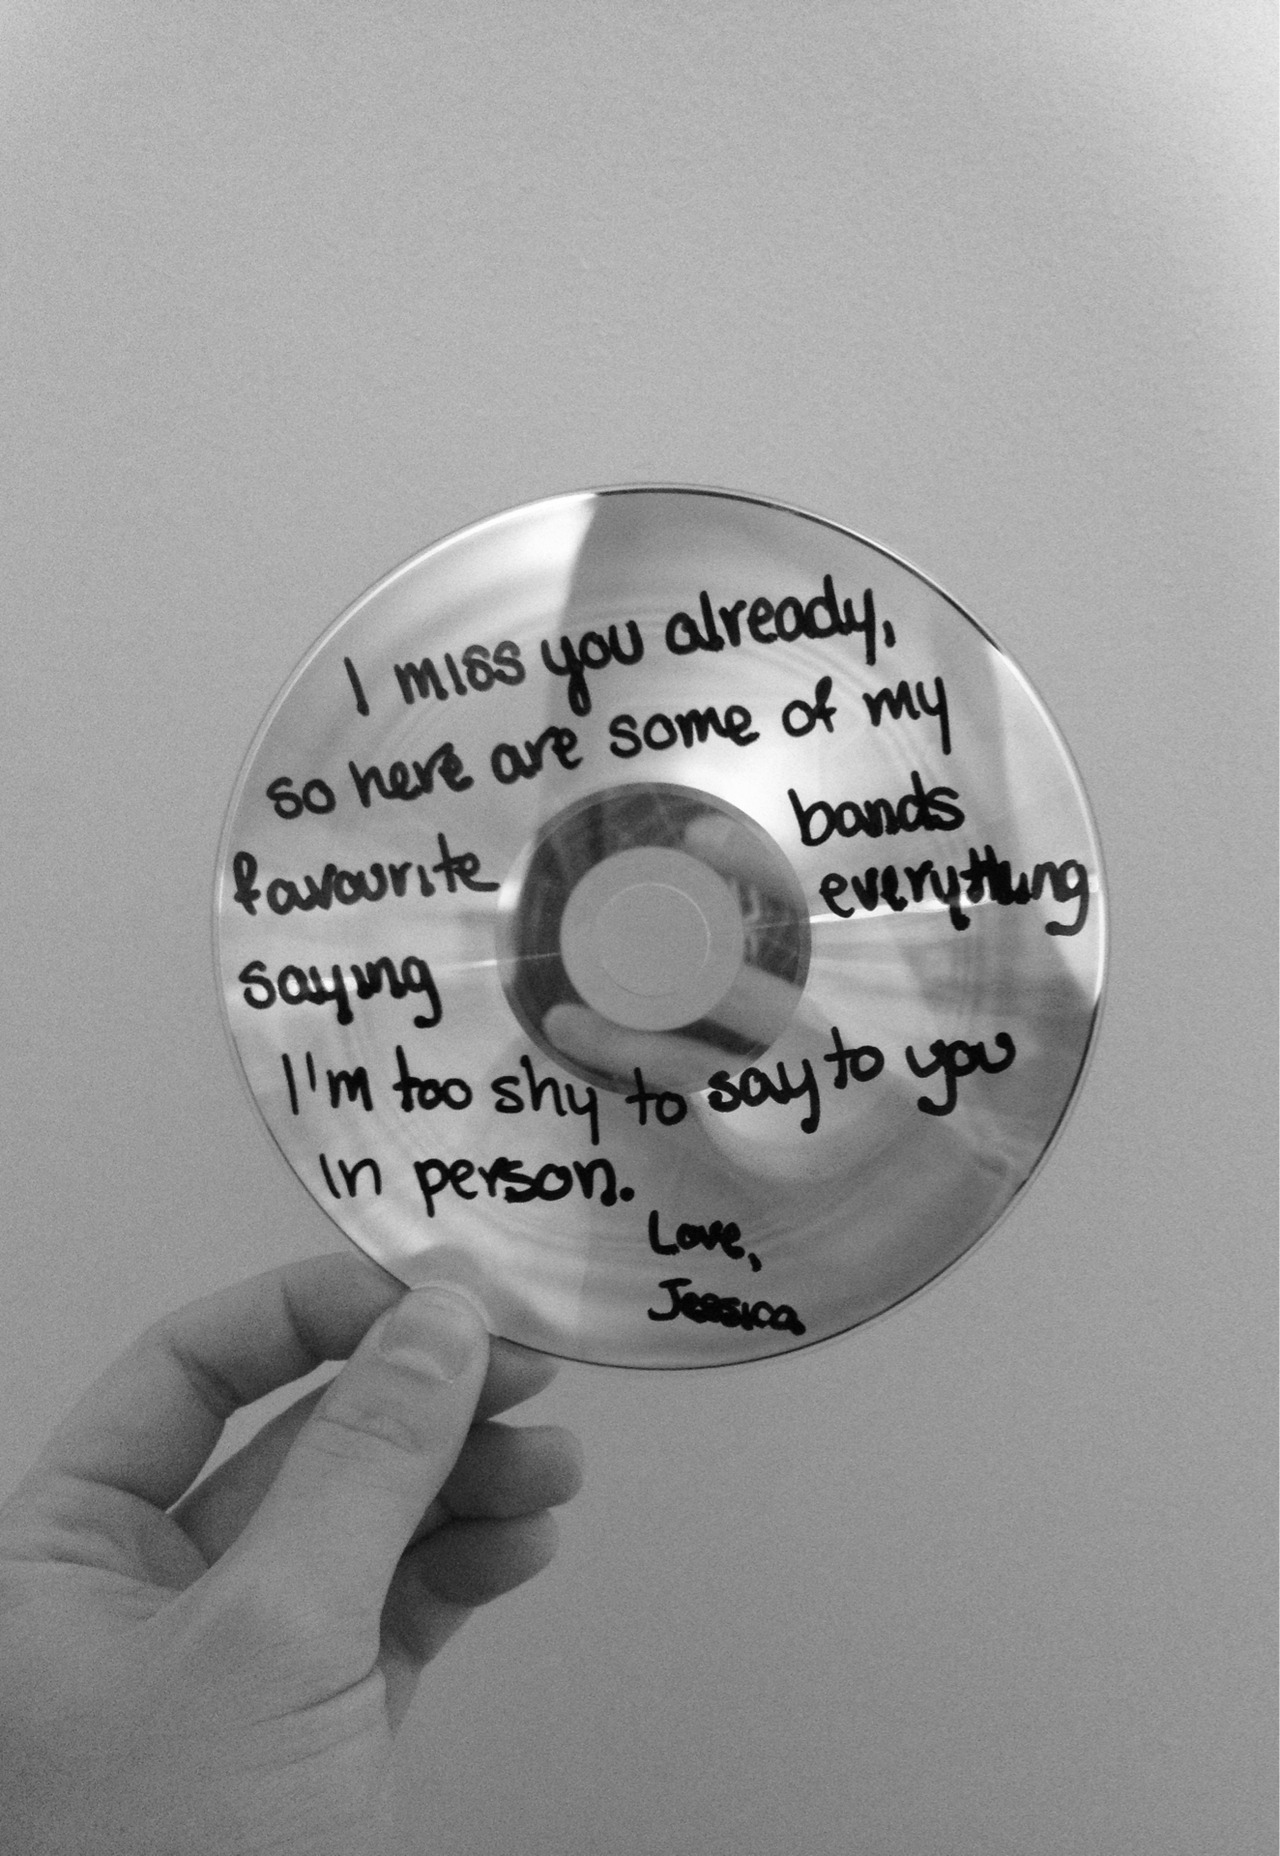 I miss you already,
so here are some of my
favourite bands
saying everything
I'm too shy to say to you
in person.
Love,
Jessica